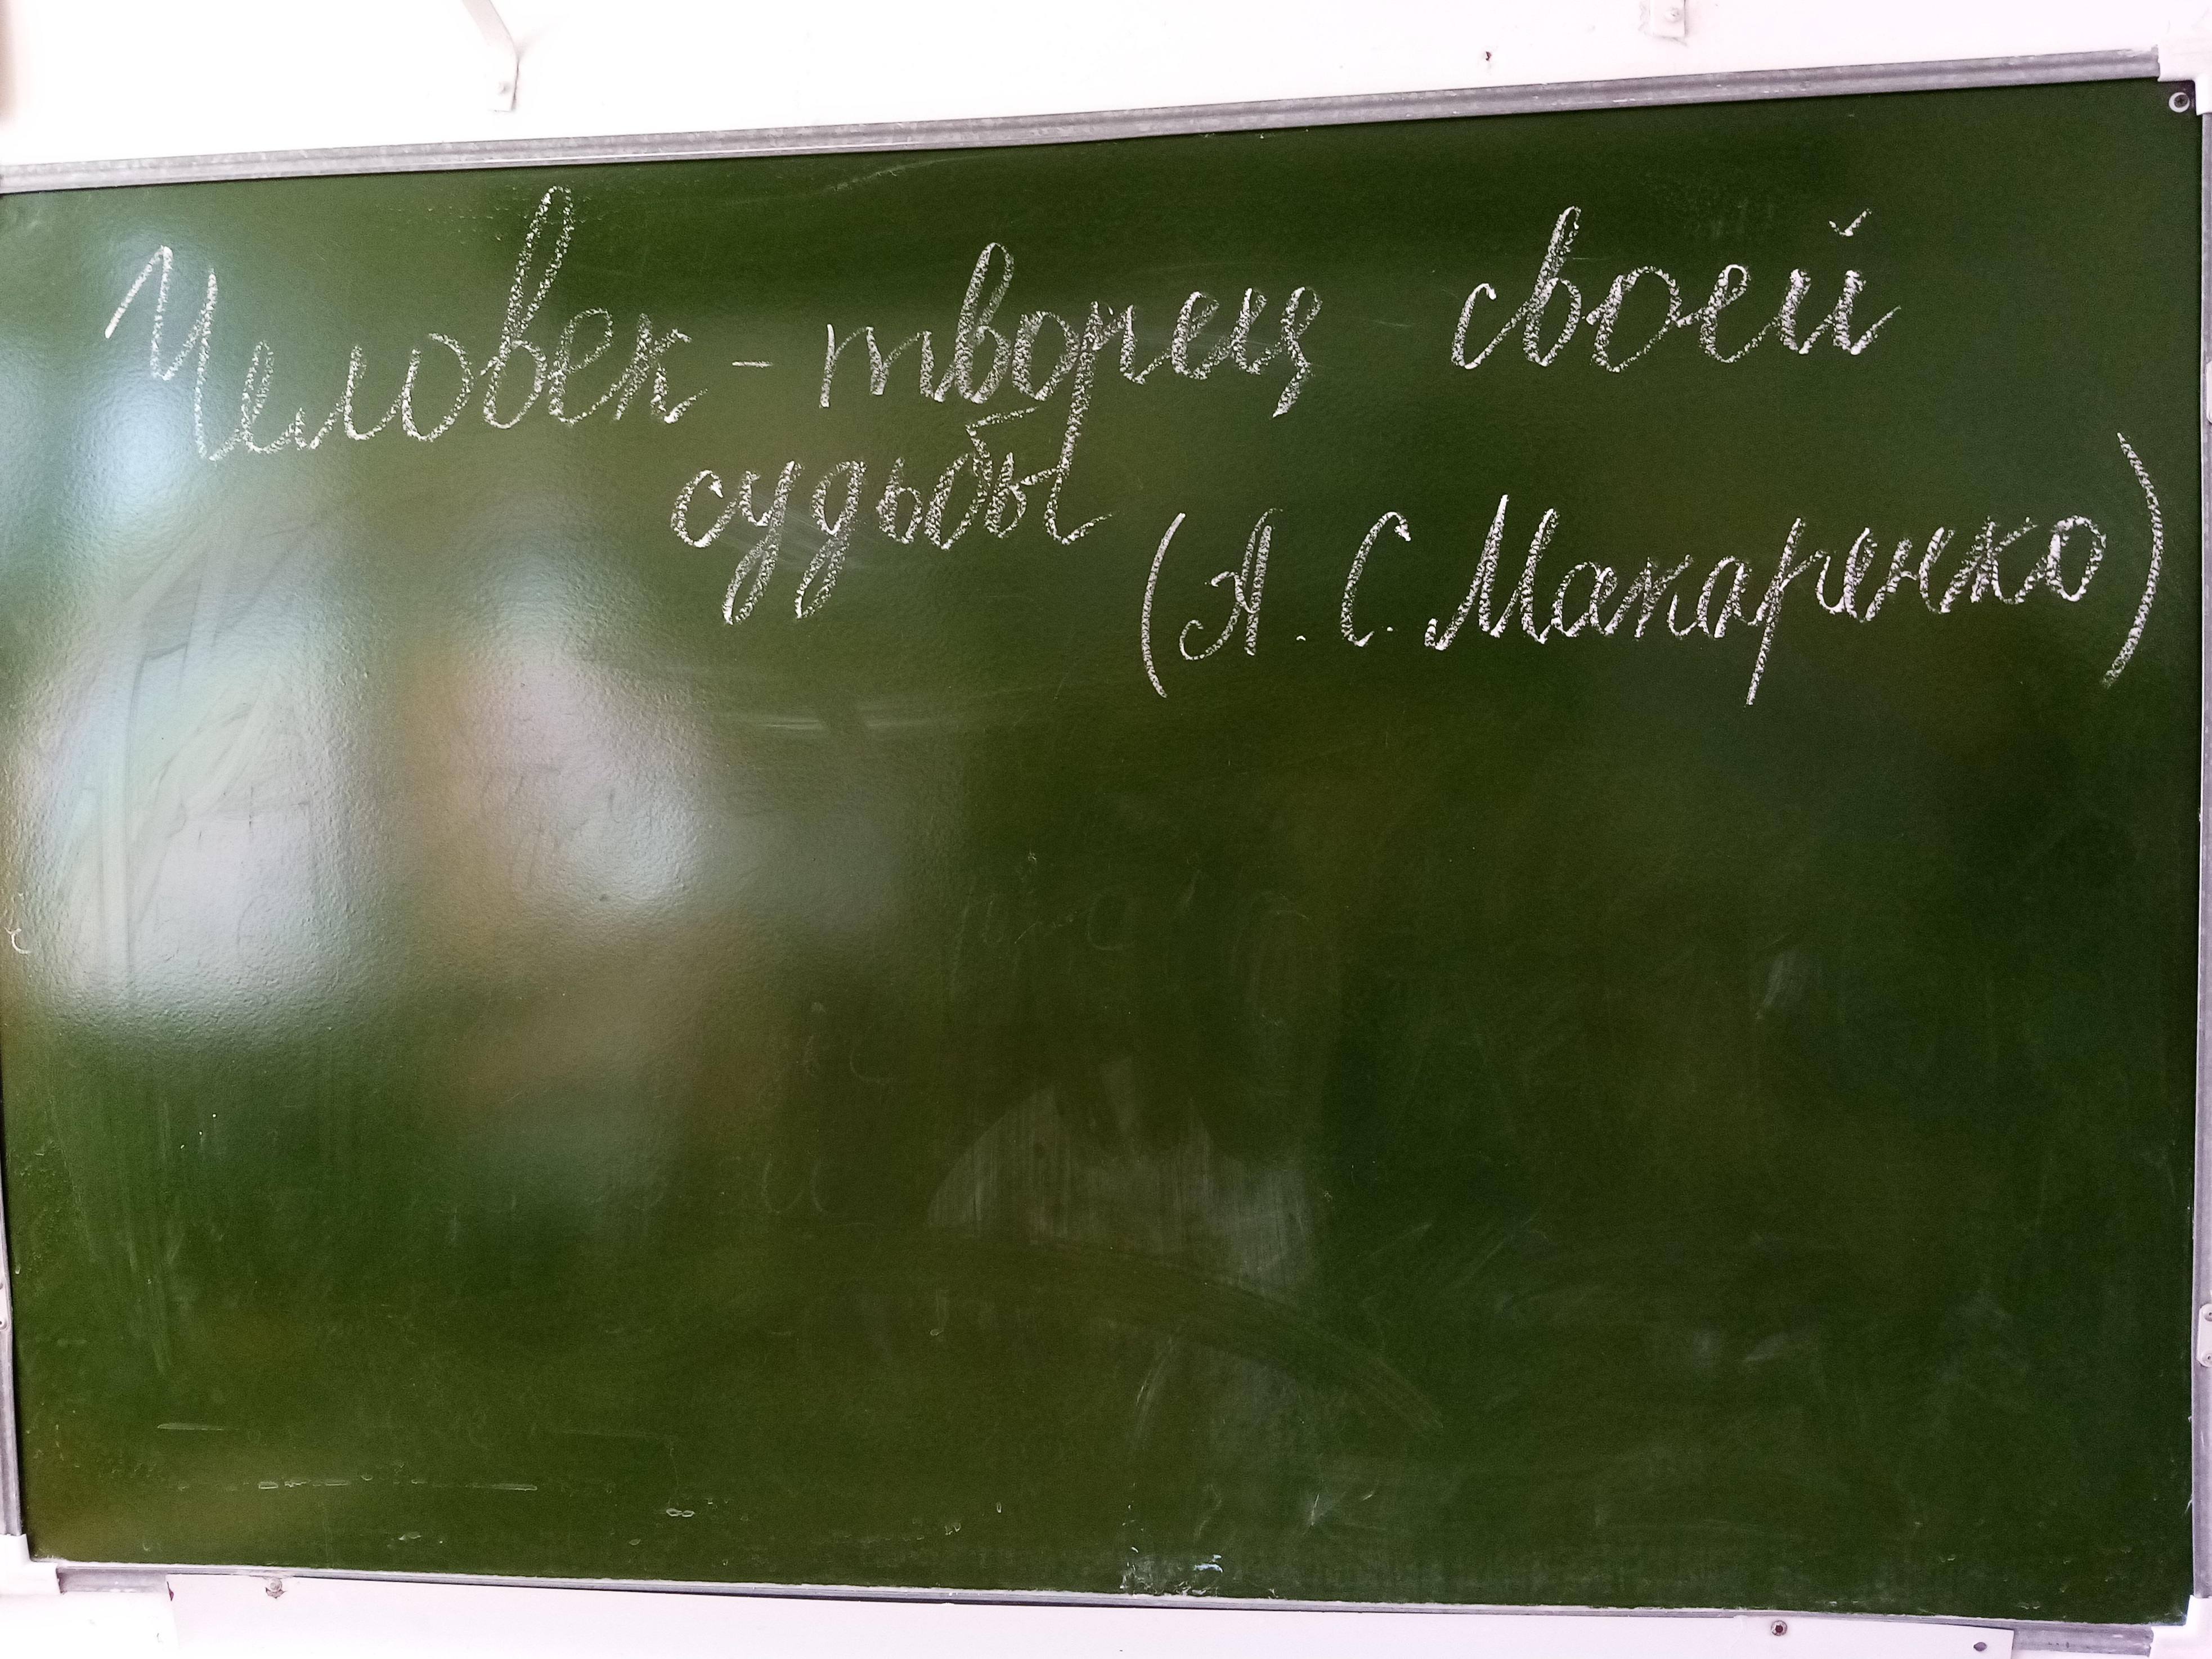 Человек - творец своей
судьбы
(А. С. Макаренко)